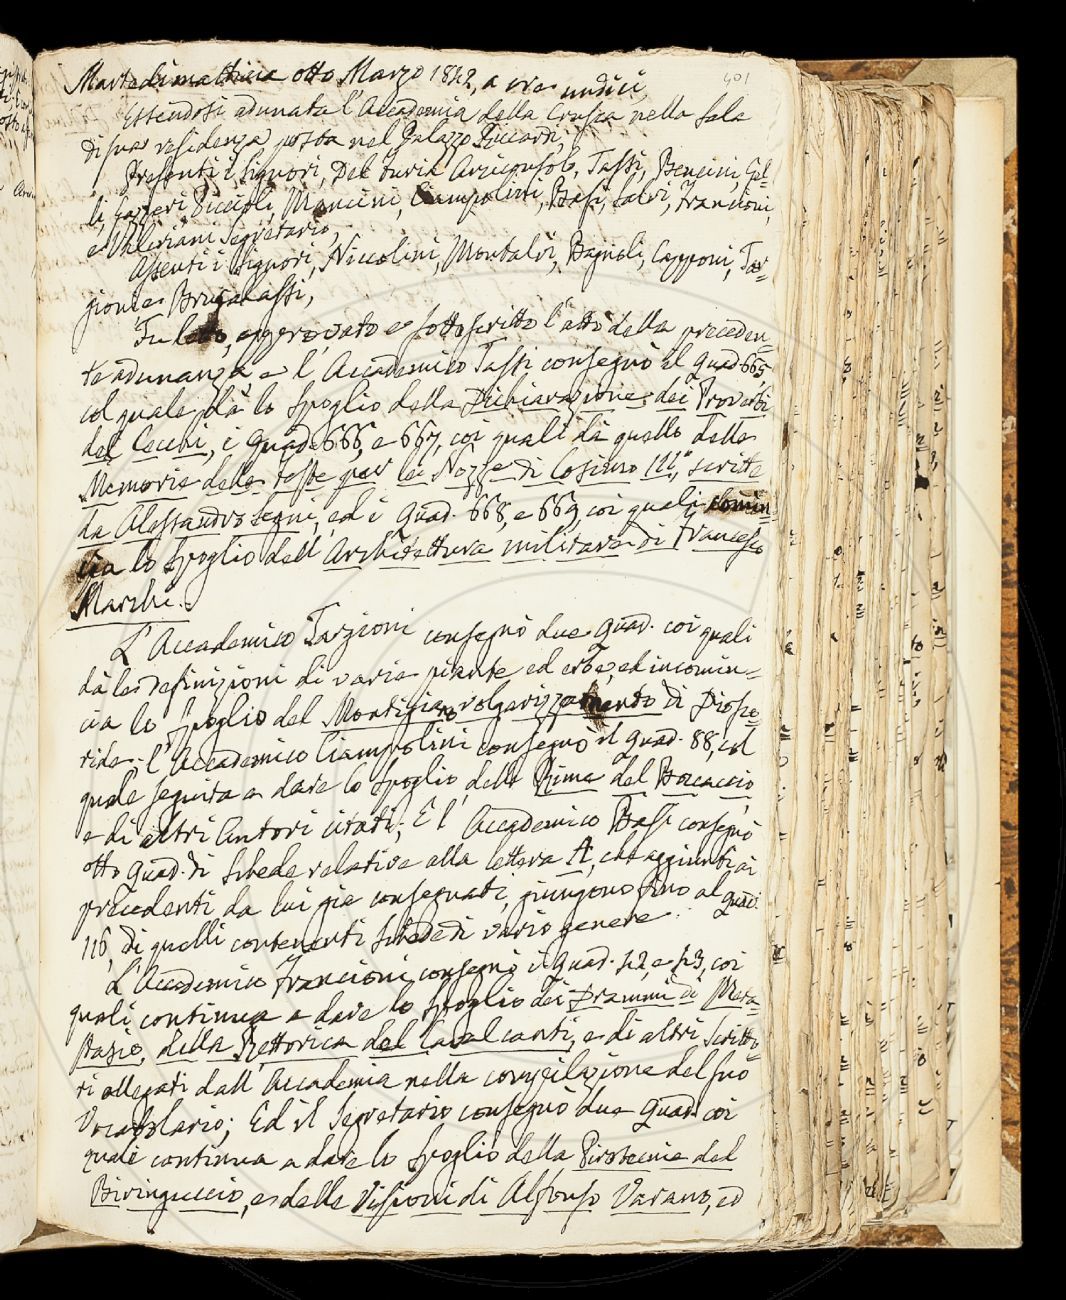 401
Martedì mattina otto Marzo 1842, a ore undici,
Essendosi adunata l'Accademia della Crusca nella Sala
di sua residenza posta nel Palazzo Riccardi,
Presenti i Signori, Del Furia Arciconsolo, Tassi, Bencini, Gel-
li, Gazzeri, Puccioli, Mancini, Ciampolini, Basi, Salvi, Francioni,
e Valeriani Segretario,
Assenti i Signori, Niccolini, Montalvi, Bagnoli, Capponi, Tar-
gioni e Brucalassi,
Fu letto, approvato e sottoscritto l'atto della preceden-
te adunanza e l'Accademico Tassi consegnò il Quad. 665,
col quale dà lo spoglio della Dichiarazione dei Proverbi
del Cecchi, i Quad. 666, e 667, coi quali dà quello delle
Memorie delle feste per le Nozze di Cosimo III.°, scritte
da Alessandro Segni, ed i Quad. 668, e 669, coi quali comin-
cia lo spoglio dell'Architettura militare di Francesco
Marchi.
L'Accademico Targioni consegnò due Quad. coi quali
dà le definizioni di varie piante ed erbe, ed incomin-
cia lo spoglio del Montigiano volgarizzamento di Diosco-
ride. l'Accademico Ciampolini consegnò il Quad. 88, col
quale seguita a dare lo spoglio delle Rime del Boccaccio,
e di altri Autori citati; E l'Accademico Basi consegnò
otto Quad. di schede relative alla lettera A, che aggiunti ai
precedenti da lui già consegnati, giungono fino al Quad.
116, di quelli contenenti schede di vario genere.
L'Accademico Francioni consegnò i Quad. 42, e 43, coi
quali continua a dare lo spoglio dei Drammi di Meta-
stasio, della Rettorica del Cavalcanti, e di altri Scritto-
ri allegati dall'Accademia nella compilazione del suo
Vocabolario; Ed il Segretario consegnò due Quad. coi
quali continua a dare lo spoglio della Pirotecnia del
Biringuccio, e delle Visioni di Alfonso Varano, ed